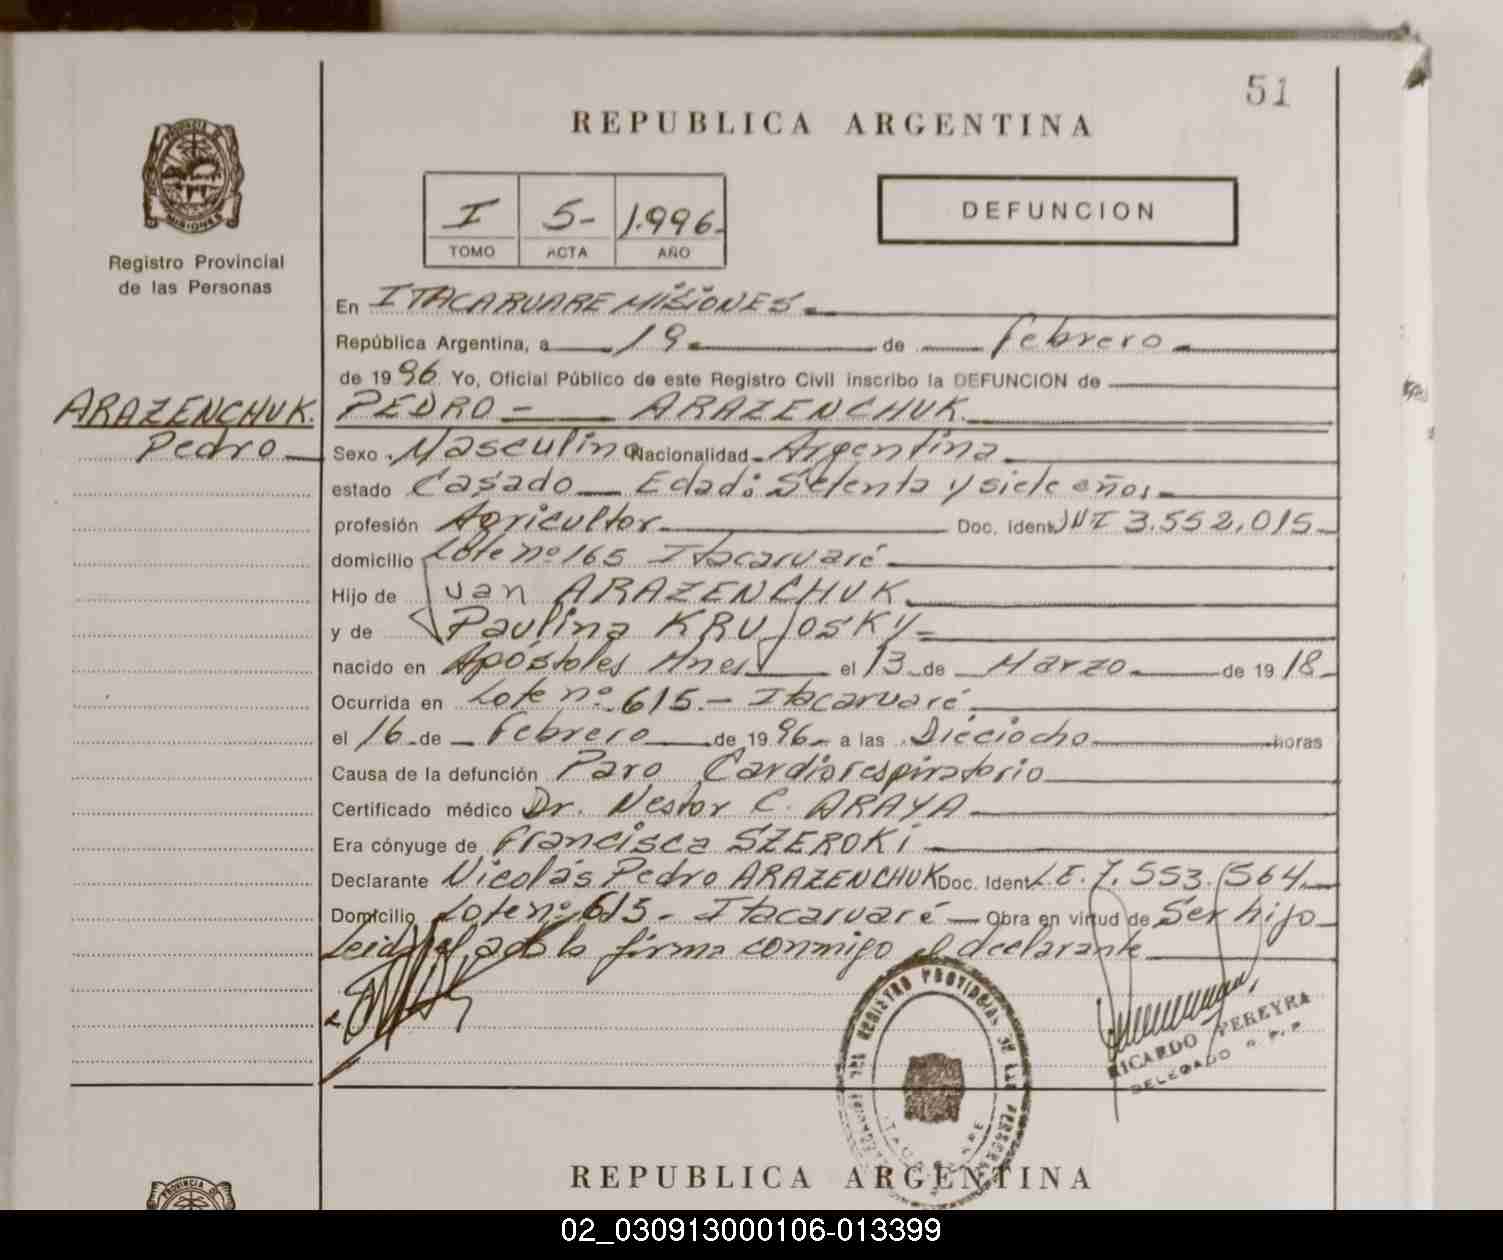 51
REPUBLICA ARGENTINA
PROVINCIA DE
MISIONES
Registro Provincial
de las Personas
I 5- 1.996-
TOMO ACTA AÑO
DEFUNCION
En ITACARUARE MISIONES
República Argentina, a 19 de Febrero
de 1996. Yo, Oficial Público de este Registro Civil inscribo la DEFUNCION de
ARAZENCHUK.
Pedro
PEDRO - ARAZENCHUK
Sexo Masculino Nacionalidad Argentina
estado Casado Edad: Setenta y siete años
profesión Agricultor Doc. Ident. DNI 3.552.015
domicilio Lote nº 165 Itacaruaré
Hijo de Juan ARAZENCHUK
y de Paulina KRUJOSKY
nacido en Apóstoles Mnes el 13 de Marzo de 1918
Ocurrida en Lote nº 615 - Itacaruaré
el 16 de Febrero de 1996 a las Dieciocho horas
Causa de la defunción Paro Cardiorespiratorio
Certificado médico Dr. Nestor C. ARAYA
Era cónyuge de Francisca SZEROKI
Declarante Nicolás Pedro ARAZENCHUK Doc. Ident. L.E. 7.553.564
Domicilio Lote nº 615 - Itacaruaré Obra en virtud de Ser hijo
Leida el acta la firma conmigo el declarante
REGISTRO PROVINCIAL DE LAS PERSONAS
ITACARUARE
RICARDO PEREYRA
DELEGADO R.P.P.
REPUBLICA ARGENTINA
PROVINCIA DE
02_030913000106-013399